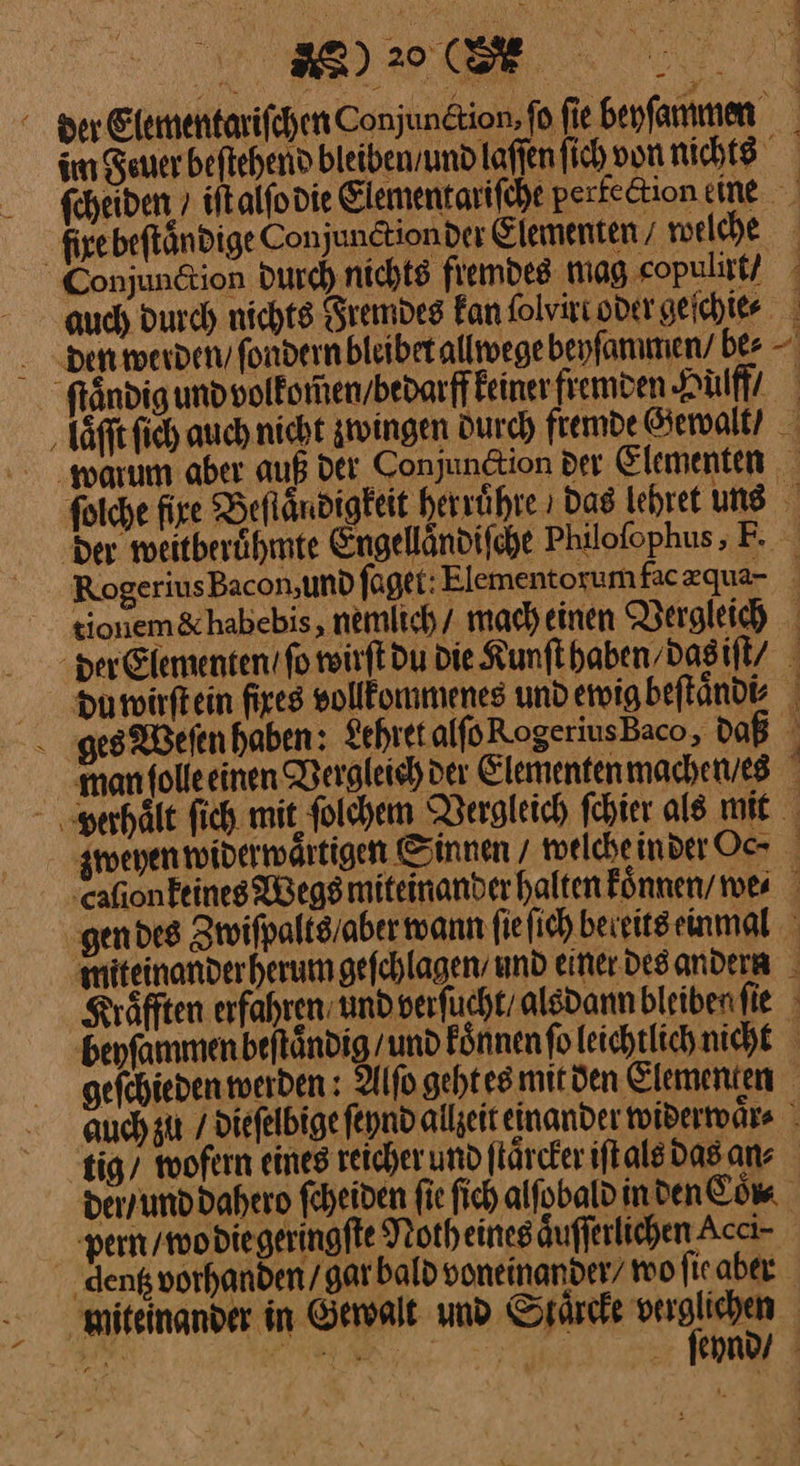 ) 20 (
der Elementariſchen Conjunction, ſo ſie beyſammen
im Feuer beſtehend bleiben/und laſſen ſich von nichts
ſcheiden / iſt alſo die Elementariſche perfection eine
fixe beſtaͤndige Conjunction der Elementen / welche
Conjunction durch nichts fremdes mag copulirt/
auch durch nichts Fremdes kan ſolvirt oder geſchie⸗
den werden/ ſondern bleibet allwege beyſammen/ be⸗
ſtaͤndig und volkom̃en/bedarff keiner fremden Huͤlff/
laͤſſt ſich auch nicht zwingen durch fremde Gewalt/
warum aber auß der Conjunction der Elementen
ſolche fixe Beſtaͤndigkeit herruͤhre / das lehret uns
der weitberuͤhmte Engellaͤndiſche Philoſophus, F.
Rogerius Bacon, und ſaget: Elementorum fac æqua-
tionem & habebis, nemlich / mach einen Vergleich
der Elementen/ ſo wirſt du die Kunſt haben/ das iſt/
du wirſt ein fixes vollkommenes und ewig beſtaͤndi⸗
ges Weſen haben: Lehret alſo Rogerius Baco, daß
man ſolle einen Vergleich der Elementen machen/es
verhaͤlt ſich mit ſolchem Vergleich ſchier als mit
zweyen widerwaͤrtigen Sinnen / welche in der Oc-
caſion keines Wegs miteinander halten koͤnnen/ we⸗
gen des Zwiſpalts/aber wann ſie ſich bereits einmal
miteinander herum geſchlagen/ und einer des andern
Kraͤfften erfahren/ und verſucht/ alsdann bleiben ſie
beyſammen beſtaͤndig / und koͤnnen ſo leichtlich nicht
geſchieden werden: Alſo geht es mit den Elementen
auch zu / dieſelbige ſeynd allzeit einander widerwaͤr⸗
tig / wofern eines reicher und ſtaͤrcker iſt als das an⸗
der/ und dahero ſcheiden ſie ſich alſobald in den Coͤr⸗
pern / wo die geringſte Noth eines aͤuſſerlichen Acci-
dentz vorhanden / gar bald voneinander/ wo ſie aber
miteinander in Gewalt und Staͤrcke verglichen
ſeynd/